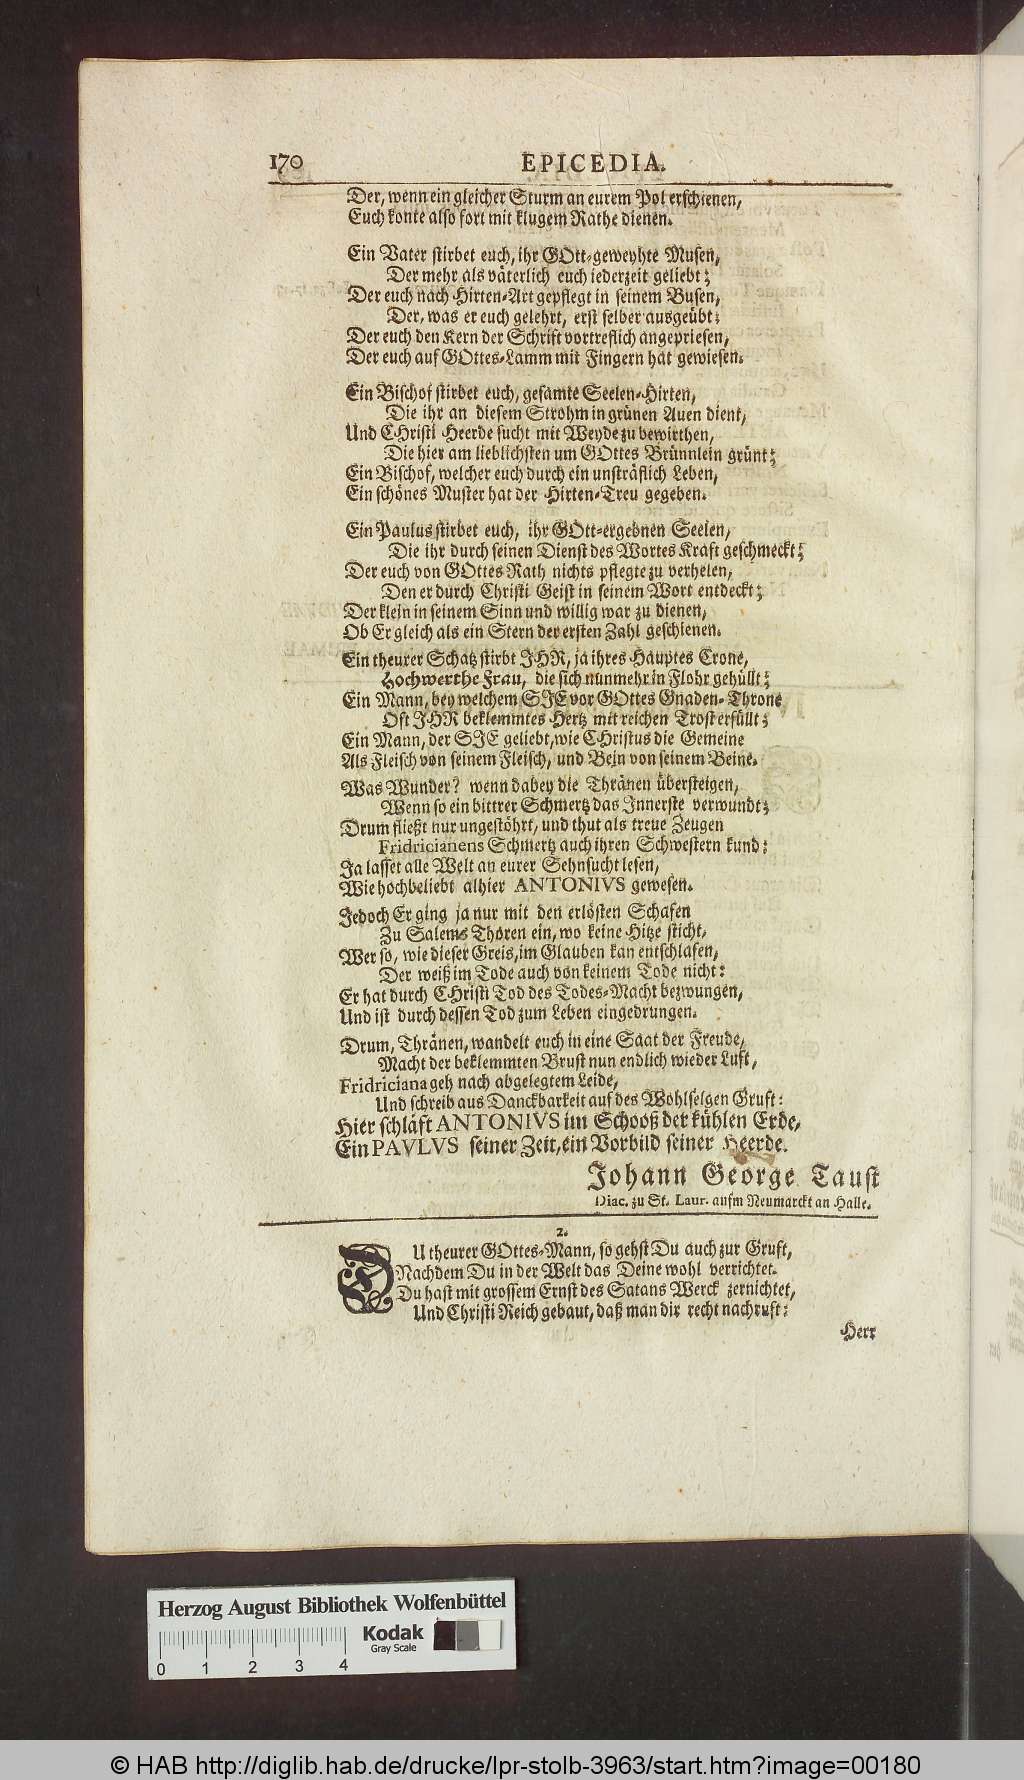 170 EPICEDIA.
Der, wenn ein gleicher Sturm an eurem Pol erschienen,
Euch konte also fort mit klugem Rathe dienen.
Ein Vater stirbet euch, ihr GOtt-geweyhte Musen,
Der mehr als väterlich euch iederzeit geliebt;
Der euch nach Hirten-Art gepflegt in seinem Busen,
Der, was er euch gelehrt, erst selber ausgeübt;
Der euch den Kern der Schrift vortreflich angepriesen,
Der euch auf GOttes-Lamm mit Fingern hat gewiesen.
Ein Bischof stirbet euch, gesamte Seelen-Hirten,
Die ihr an diesem Strohm in grünen Auen dient,
Und CHristi Heerde sucht mit Weyde zu bewirthen,
Die hier am lieblichsten um GOttes Brünnlein grünt;
Ein Bischof, welcher euch durch ein unsträflich Leben,
Ein schönes Muster hat der Hirten-Treu gegeben.
Ein Paulus stirbet euch, ihr GOtt-ergebnen Seelen,
Die ihr durch seinen Dienst des Wortes Kraft geschmeckt;
Der euch von GOttes Rath nichts pflegte zu verhelen,
Den er durch Christi Geist in seinem Wort entdeckt;
Der klein in seinem Sinn und willig war zu dienen,
Ob Er gleich als ein Stern der ersten Zahl geschienen.
Ein theurer Schatz stirbt JHR, ja ihres Hauptes Crone,
Hochwerthe Frau, die sich nunmehr in Flohr gehüllt;
Ein Mann, bey welchem SIE vor GOttes Gnaden-Throne
Oft JHR beklemmtes Hertz mit reichen Trost erfüllt;
Ein Mann, der SIE geliebt, wie CHristus die Gemeine
Als Fleisch von seinem Fleisch, und Bein von seinem Beine.
Was Wunder? wenn dabey die Thränen übersteigen,
Wenn so ein bittrer Schmertz das Innerste verwundt;
Drum fließt nur ungestöhrt, und thut als treue Zeugen
Fridricianens Schmertz auch ihren Schwestern kund:
Ja lasset alle Welt an eurer Sehnsucht lesen,
Wie hochbeliebt alhier ANTONIVS gewesen.
Jedoch Er ging ja nur mit den erlösten Schafen
Zu Salems Thoren ein, wo keine Hitze sticht,
Wer so, wie dieser Greis, im Glauben kan entschlafen,
Der weiß im Tode auch von keinem Tode nicht:
Er hat durch CHristi Tod des Todes-Macht bezwungen,
Und ist durch dessen Tod zum Leben eingedrungen.
Drum, Thränen, wandelt euch in eine Saat der Freude,
Macht der beklemmten Brust nun endlich wieder Luft,
Fridriciana geh nach abgelegtem Leide,
Und schreib aus Danckbarkeit auf des Wohlselgen Gruft:
Hier schläft ANTONIVS im Schooß der kühlen Erde,
Ein PAVLVS seiner Zeit, ein Vorbild seiner Heerde.
Johann George Taust
Diac. zu St. Laur. aufm Neumarckt an Halle.
2.
DU theurer GOttes-Mann, so gehst Du auch zur Gruft,
Nachdem Du in der Welt das Deine wohl verrichtet.
Du hast mit grossem Ernst des Satans Werck zernichtet,
Und Christi Reich gebaut, daß man dir recht nachruft:
Herr
Herzog August Bibliothek Wolfenbüttel
Kodak
Gray Scale
0 1 2 3 4
© HAB http://diglib.hab.de/drucke/lpr-stolb-3963/start.htm?image=00180